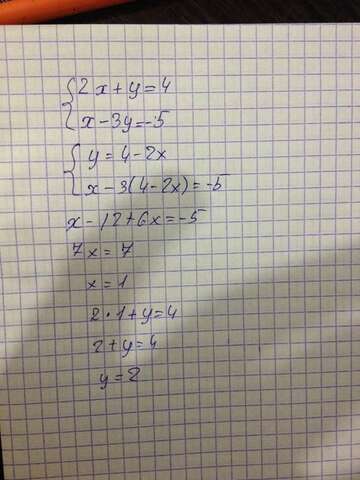 2x+y=4
x-3y=-5
y=4-2x
x-3(4-2x)=-5
x-12+6x=-5
7x=7
x=1
2·1+y=4
2+y=4
y=2